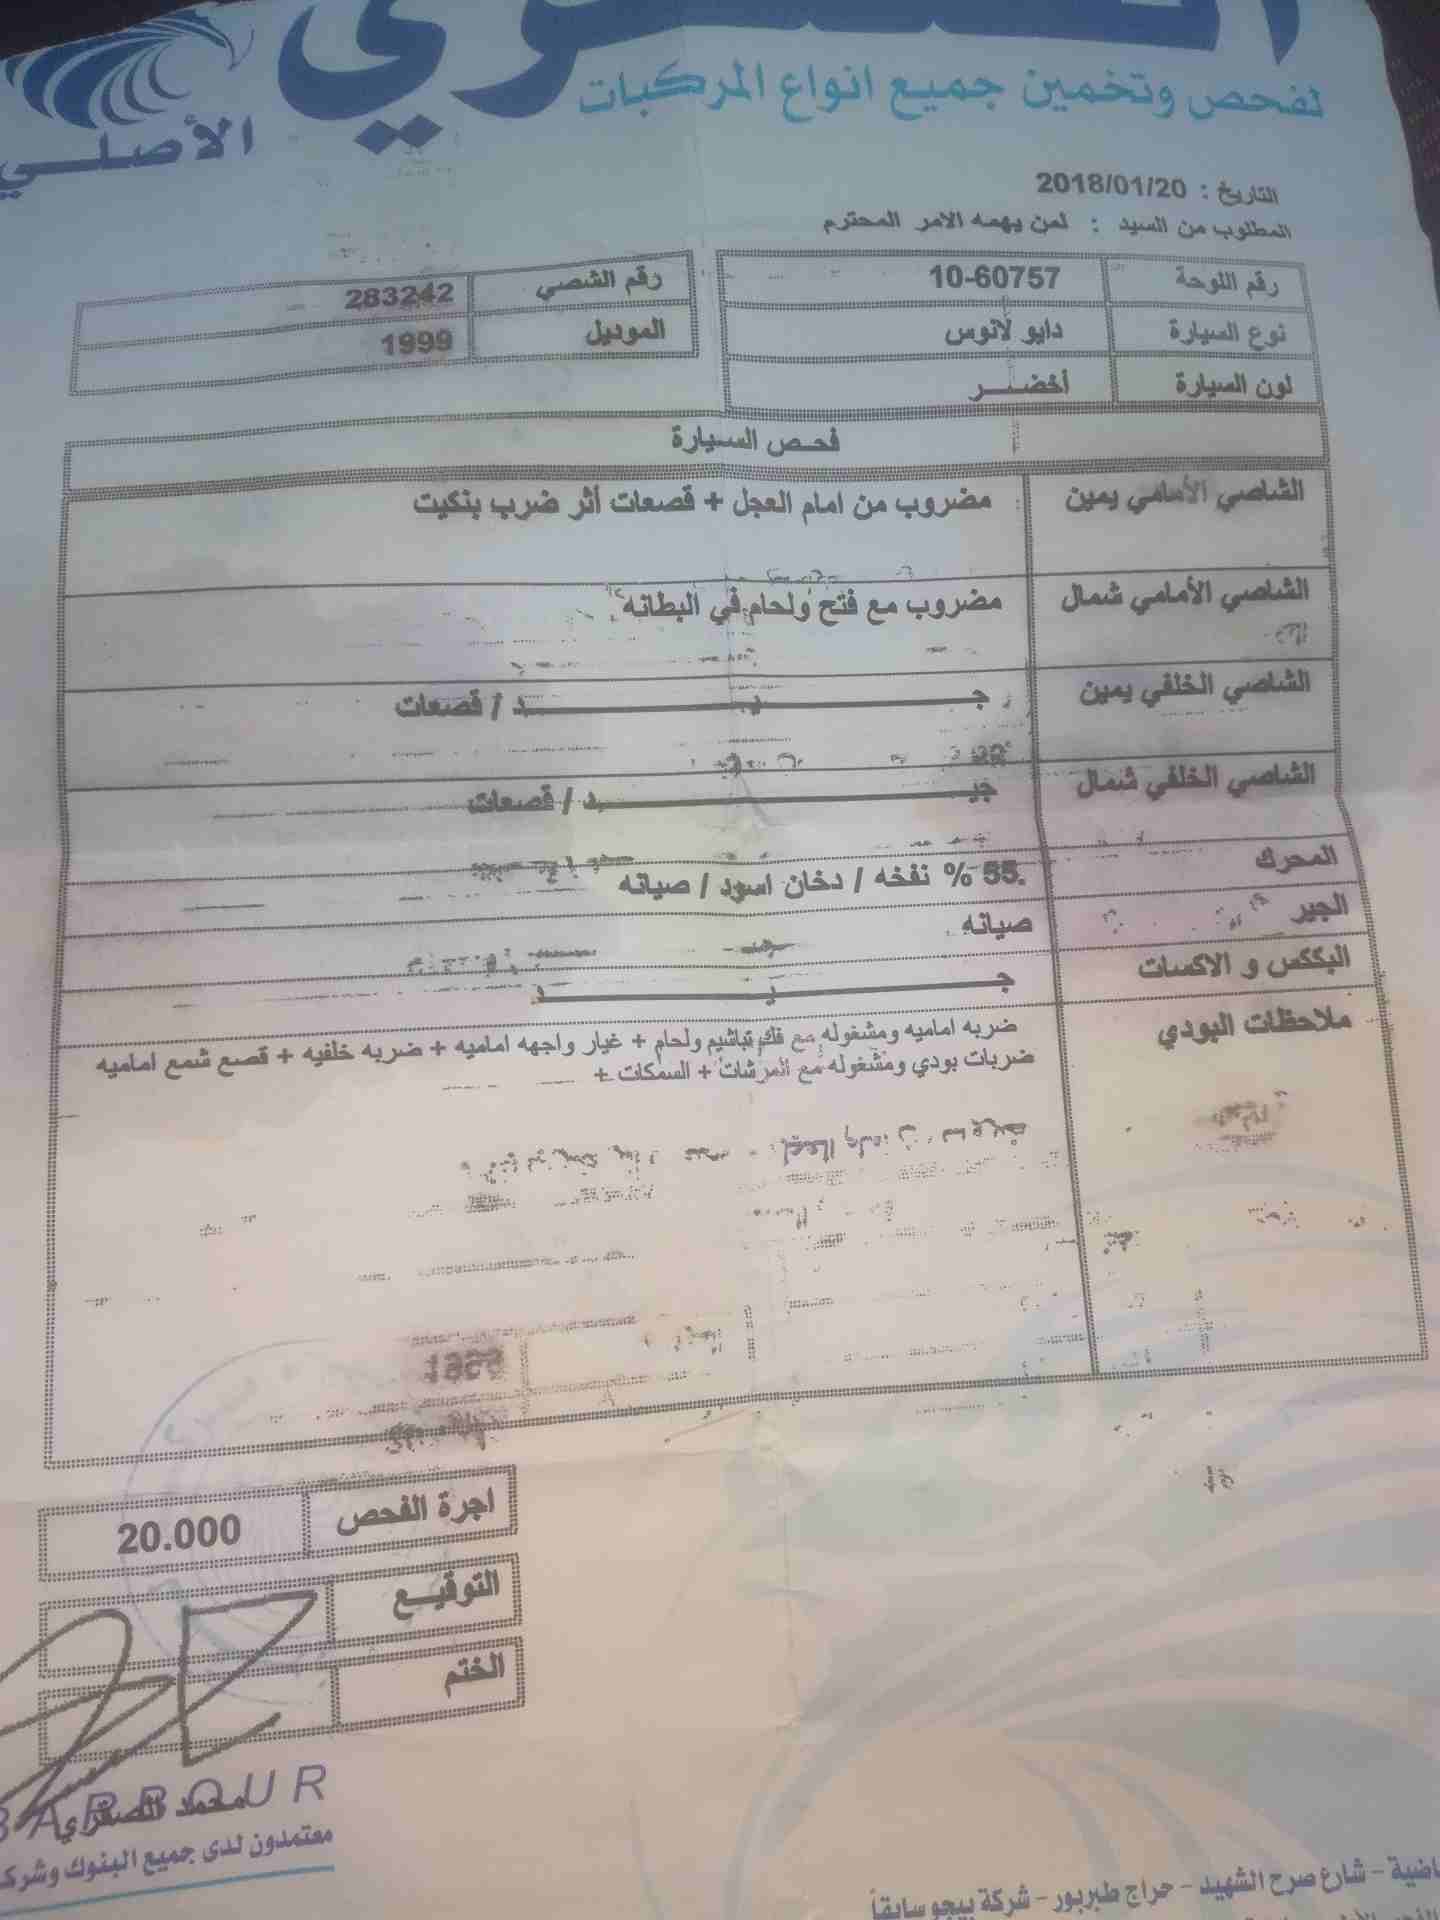 لفحص وتخمين جميع انواع المركبات
الأصلي
التاريخ : 2018/01/20
المطلوب من السيد : لمن يهمه الامر المحترم
رقم اللوحة 10-60757 رقم الشصي 283242
نوع السيارة دايو لانوس الموديل 1999
لون السيارة أخضــر
فحص السيارة
الشاصي الأمامي يمين مضروب من امام العجل + قصعات أثر ضرب بنكيت
الشاصي الأمامي شمال مضروب مع فتح ولحام في البطانه
الشاصي الخلفي يمين جــيــد / قصعات
الشاصي الخلفي شمال جيــد / قصعات
المحرك 55% نفخه / دخان اسود / صيانه
الجير صيانه
البككس و الاكسات جــيــد
ملاحظات البودي ضربه اماميه ومشغوله مع فك تباشيم ولحام + غيار واجهه اماميه + ضربه خلفيه + قصع شمع اماميه
ضربات بودي ومشغوله مع المرشات + السمكات +
اجرة الفحص 20.000
التوقيــع
الختم
BARBOUR
محمد الصقري
معتمدون لدى جميع البنوك
شارع صرح الشهيد - حراج طبربور - شركة بيجو سابقاً